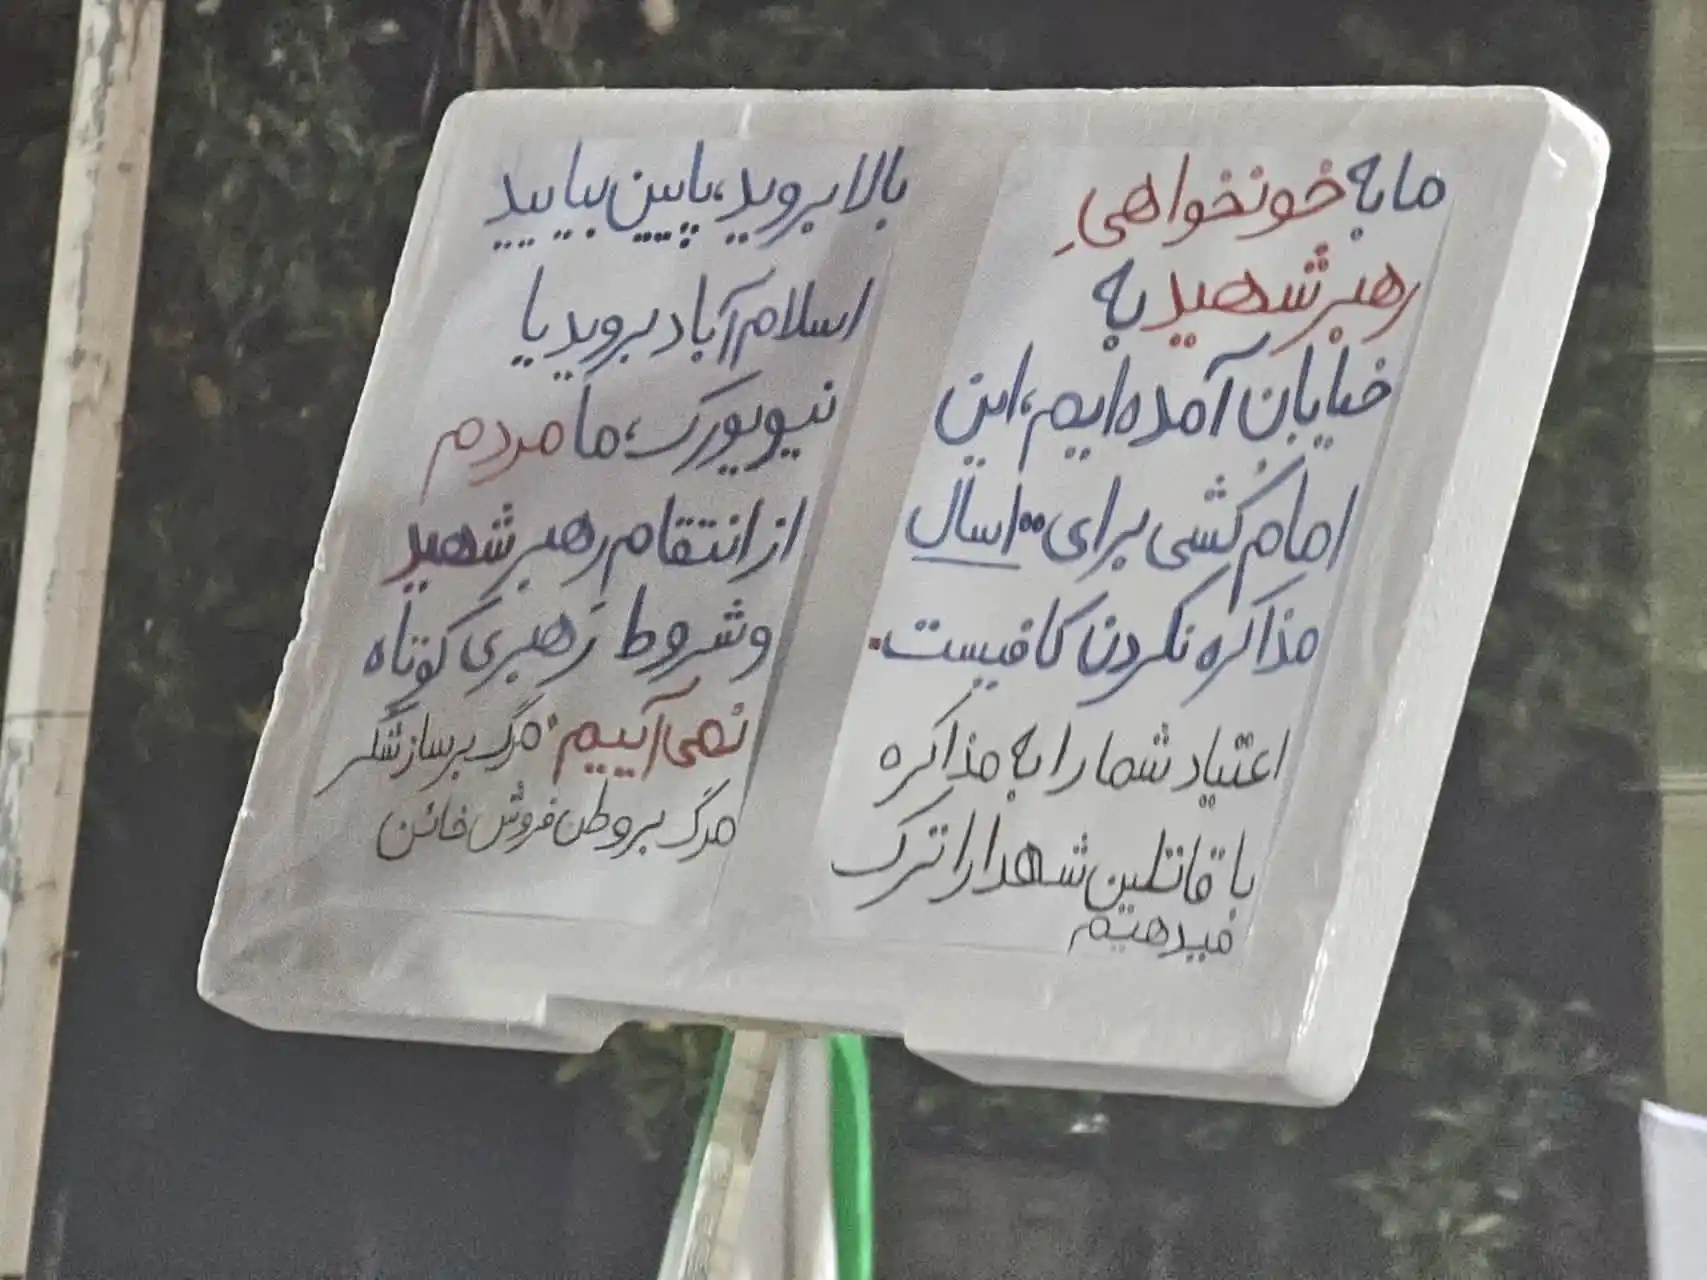 ما به خونخواهیِ
رهبر شهید به
خیابان آمده‌ایم، این
امام کُشی برای ۱۰۰ سال
مذاکره نکردن کافیست.
اعتیاد شما را به مذاکره
با قاتلین شهدا را ترک
میدهیم
بالا بروید، پایین بیایید
اسلام آباد بروید یا
نیویورک، ما مردم
از انتقام رهبر شهید
و شروط رَهبری کوتاه
نمی‌آییم. مرگ بر سازشگر
مرگ بر وطن فروش خائن